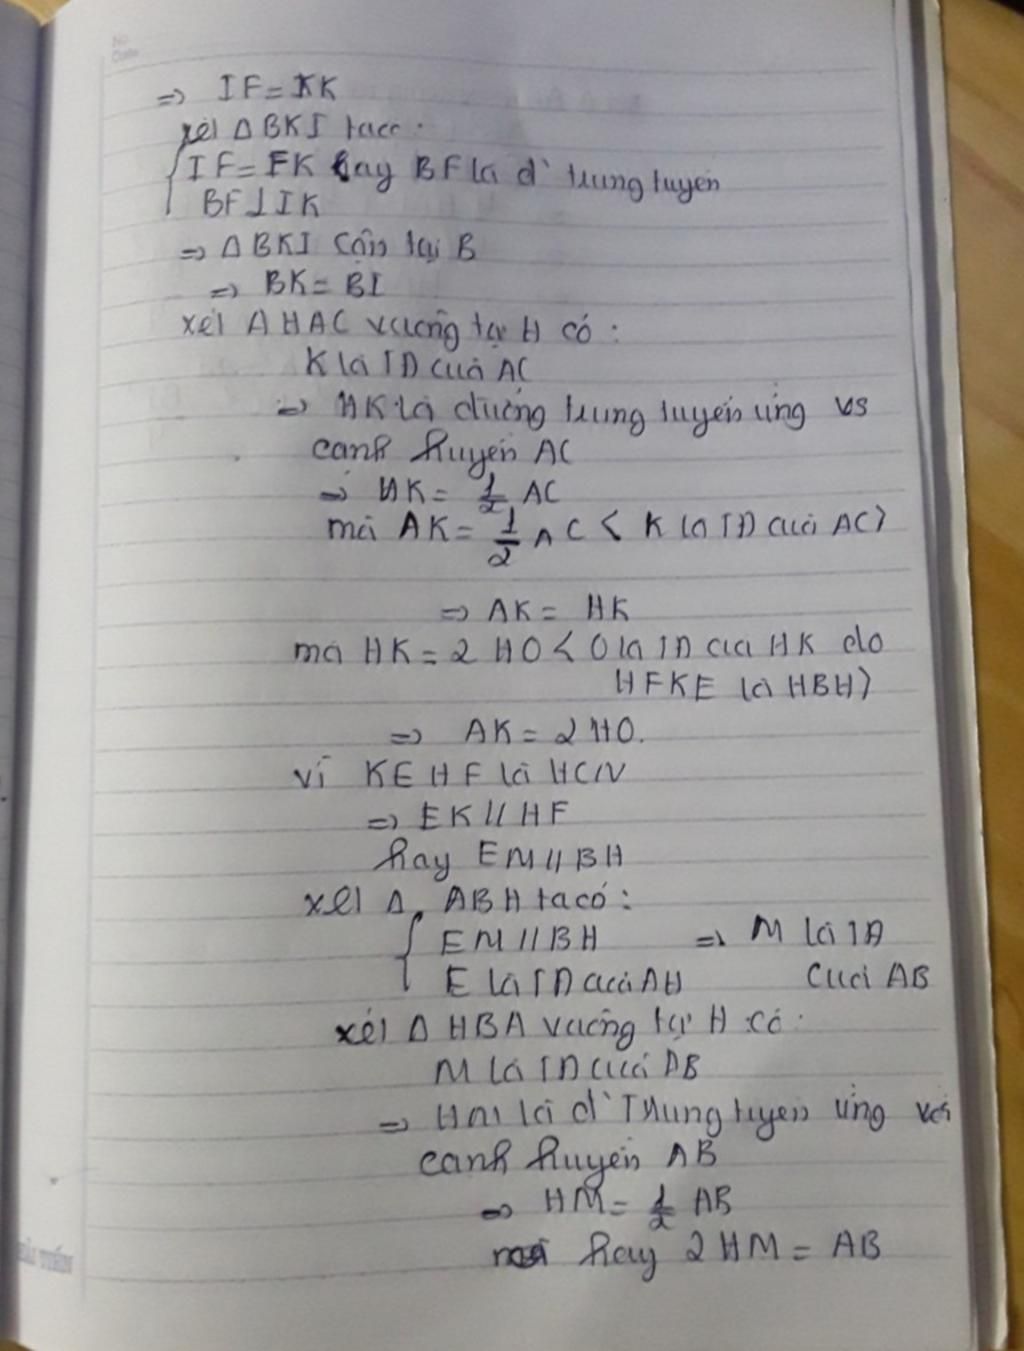 No.
Date
=> IF = KK
xét Δ BKI tacó:
IF = FK hay BF là đ' trung tuyến
BF ⊥ IK
=> Δ BKI cân tại B
=> BK = BI
xét Δ HAC vuông tại H có:
K là TĐ của AC
=> HK là đường trung tuyến ứng vs
cạnh huyền AC
=> HK = 1/2 AC
mà AK = 1/2 AC < K là TĐ của AC>
=> AK = HK
mà HK = 2 HO < O là TĐ của HK do
HFKE là HBH>
=> AK = 2 HO.
vì KEHF là HCN
=> EK // HF
hay EM // BH
xét Δ ABH ta có:
EM // BH => M là TĐ
E là TĐ của AH của AB
xét Δ HBA vuông tại H có:
M là TĐ của AB
=> HM là đ' Trung tuyến ứng với
cạnh huyền AB
=> HM = 1/2 AB
hay 2 HM = AB